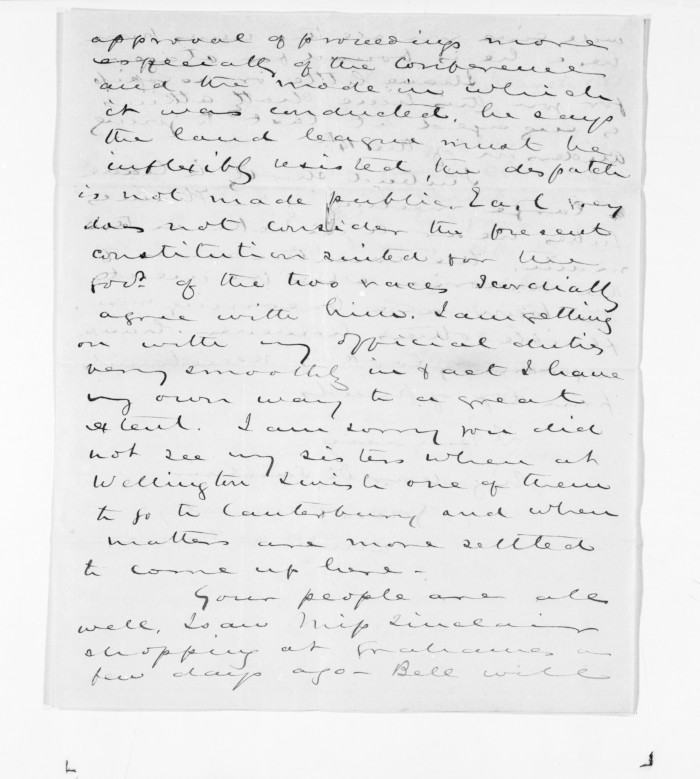 approval of proceedings more
especially of the Conference
and the mode in which
it was conducted. he says
the land league must be
inflexibly resisted, the despatch
is not made public. Earl Grey
does not consider the present
constitution suited for the
Govt. of the two races I cordially
agree with him. I am getting
on with my official duties
very smoothly in fact I have
my own way to a great
extent. I am sorry you did
not see my sisters when at
Wellington I wish one of them
to go to Canterbury and when
matters are more settled
to come up here -
Your people are all
well, I saw Miss Sinclair
shopping at Grahames a
few days ago - Bell will